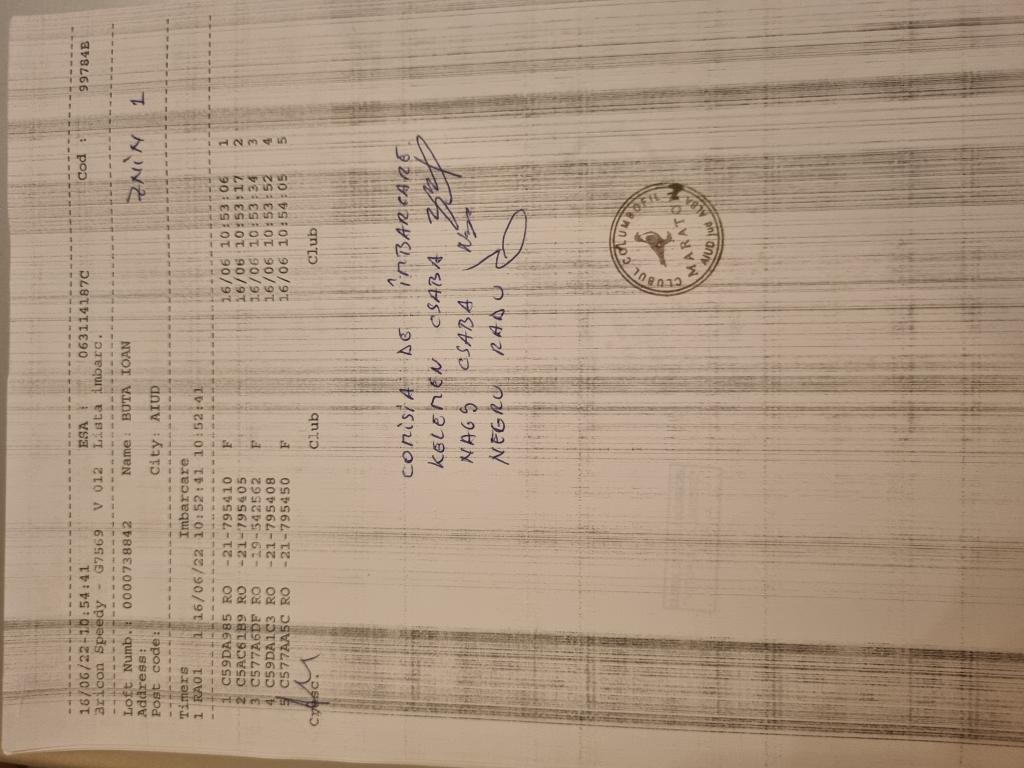 16/06/22-10:54:41 ESA : 063114187C Cod : 99784B
Bricon Speedy - G7569 V 012 Lista imbarc.
Loft Numb.: 0000738842 Name: BUTA IOAN
Address:
Post code: City: AIUD
ZNIN 1
Timers Imbarcare
1 RA01 1 16/06/22 10:52:41 10:52:41
1 C59DA985 RO -21-795410 F 16/06 10:53:06 1
2 C5AC61B9 RO -21-795405 16/06 10:53:17 2
3 C577A6DF RO -19-542562 F 16/06 10:53:34 3
4 C59DA1C3 RO -21-795408 16/06 10:53:52 4
5 C577AA5C RO -21-795450 F 16/06 10:54:05 5
Club Club
COMISIA DE ÎMBARCARE
KELEMEN CSABA
NAGY CSABA
NEGRU RADU
CLUBUL COLUMBOFIL
MARATON